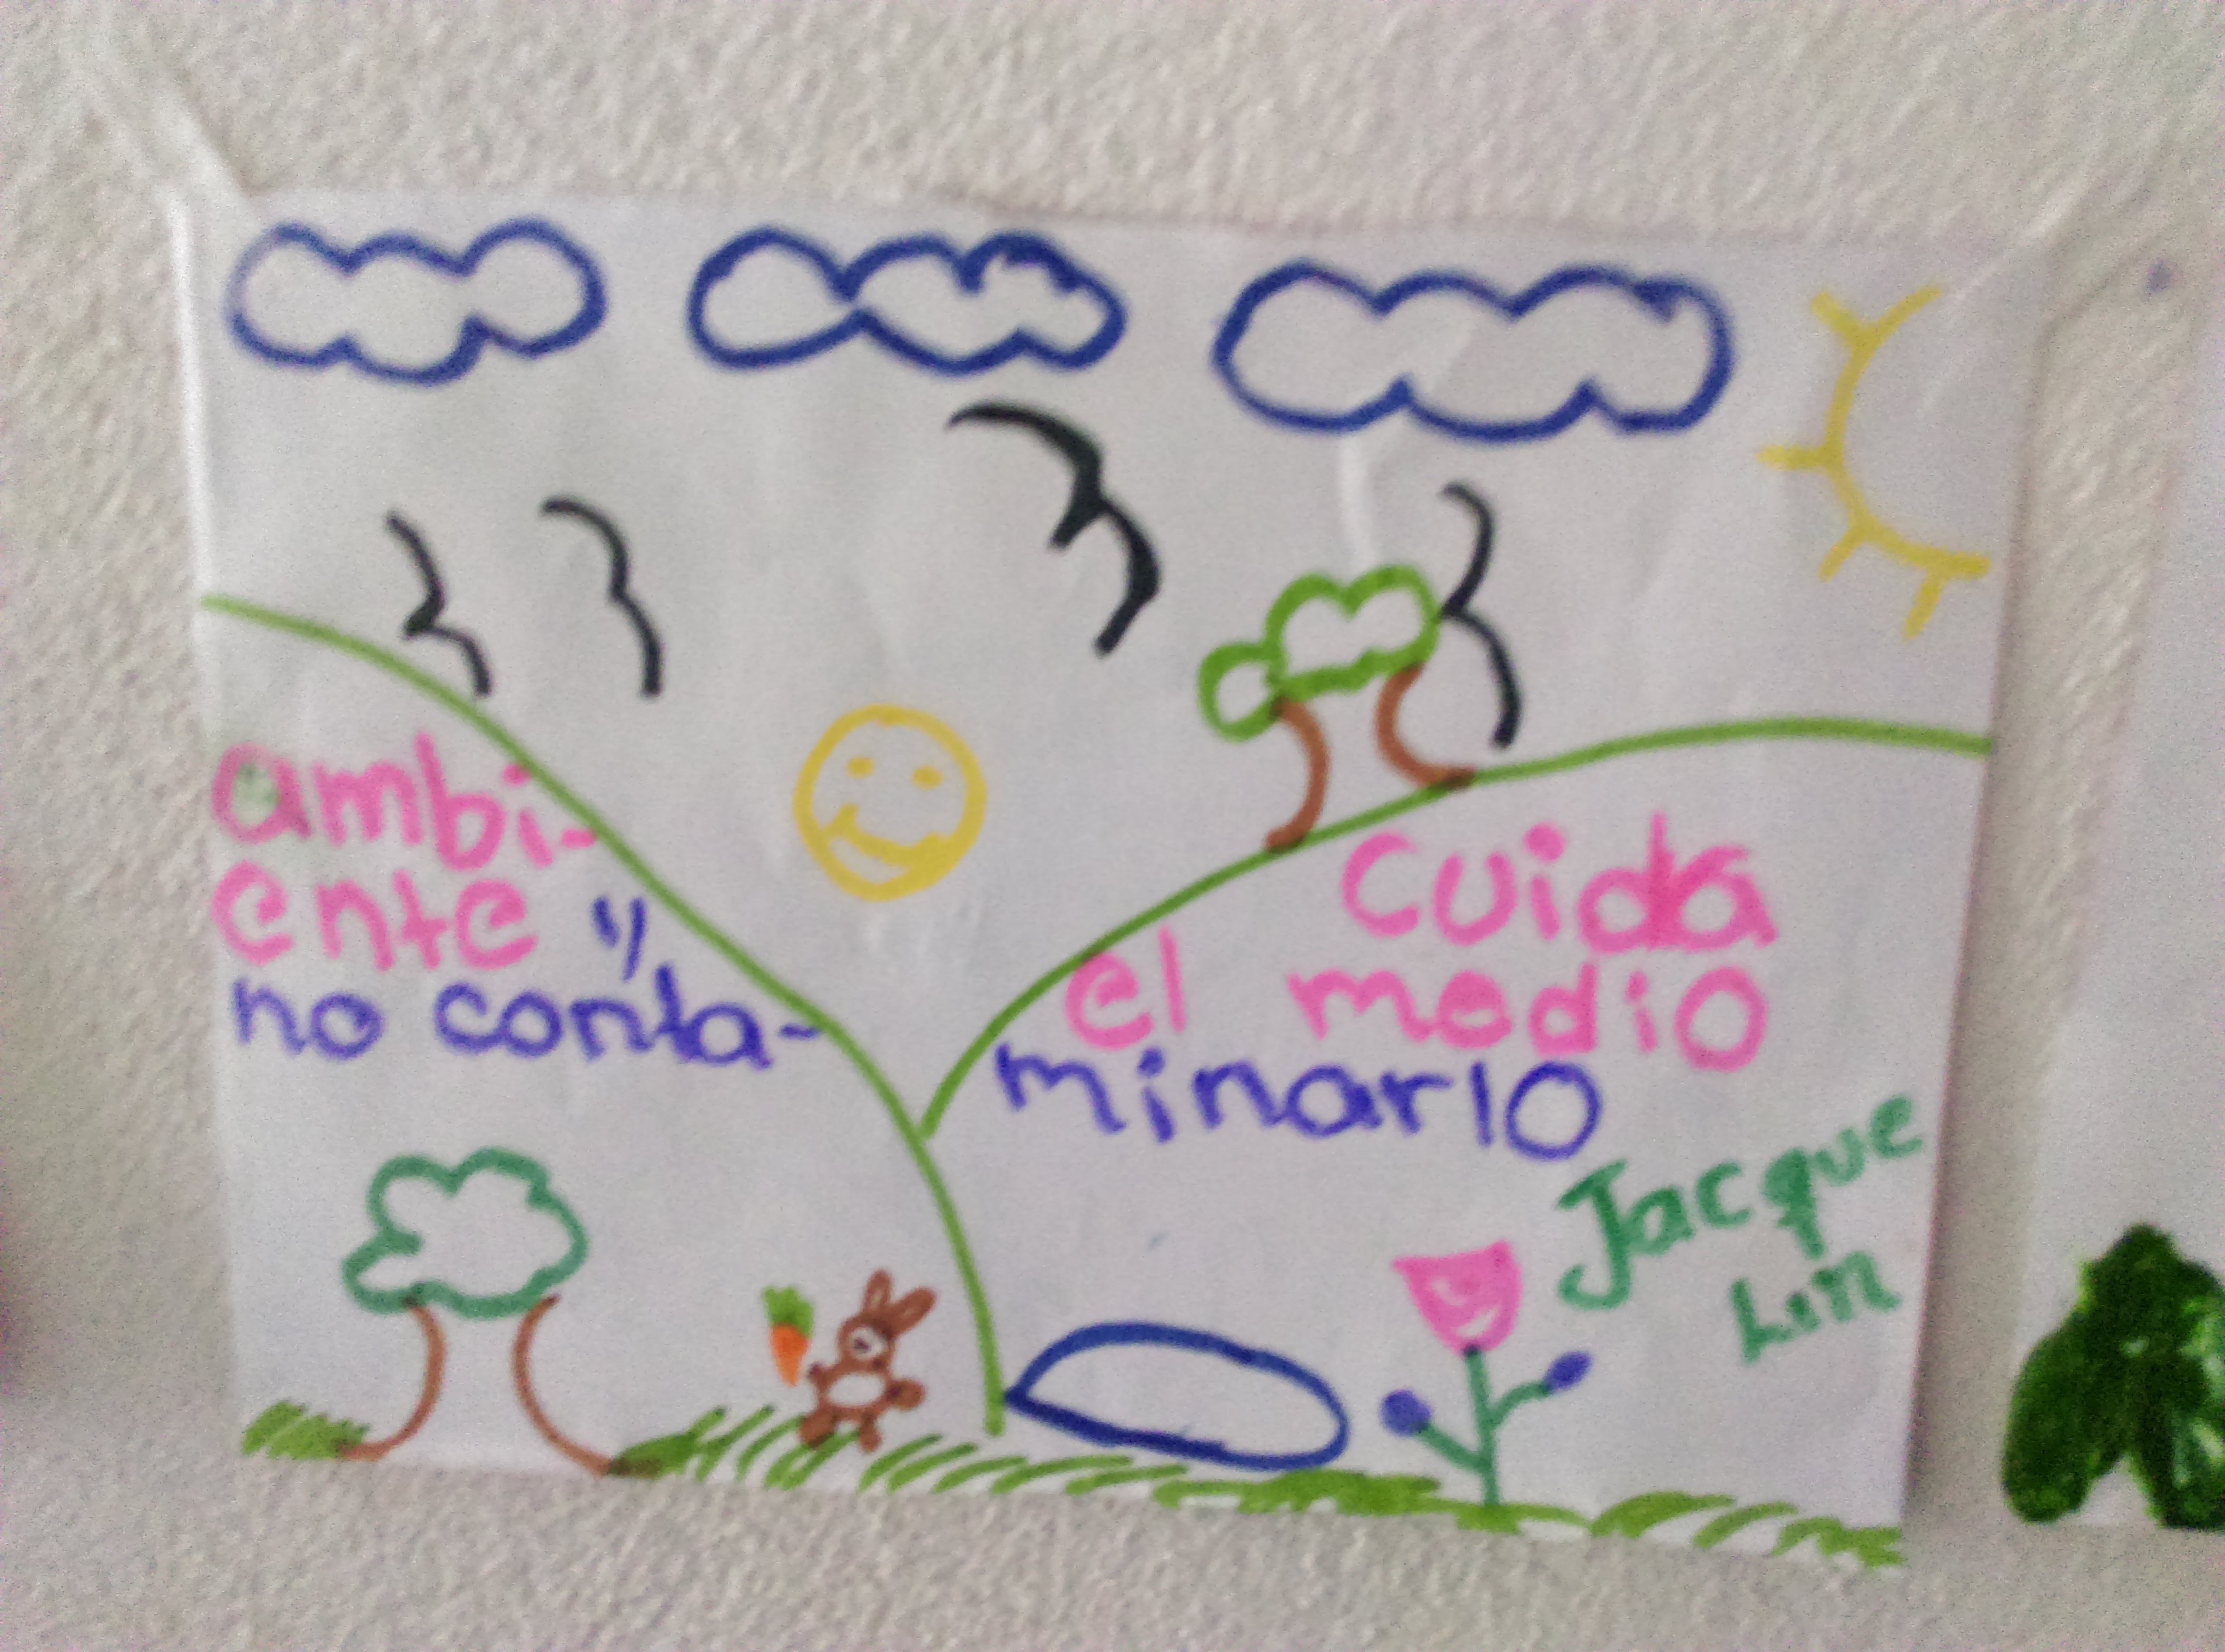 cuida
el medio
ambi-
ente y
no conta-
minarlo
Jacque
Lin